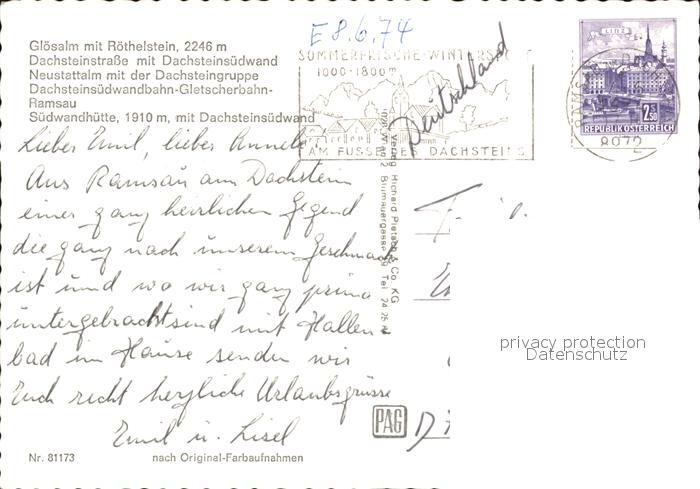 E 8.6.74
Glösalm mit Röthelstein, 2246 m
Dachsteinstraße mit Dachsteinsüdwand
Neustattalm mit der Dachsteingruppe
Dachsteinsüdwandbahn-Gletscherbahn-
Ramsau
Südwandhütte, 1910 m, mit Dachsteinsüdwand
SOMMERFRISCHE-WINTERS
1000-1800 m
AM FUSSE DES DACHSTEINS
Deutschland
LINZ
2.50
REPUBLIK ÖSTERREICH
8972
Lieber Emil, lieber
Aus Ramsau am Dachstein
einer ganz herrlichen Gegend
die ganz nach unserem Geschmack
ist und wo wir ganz prima
untergebracht sind mit Hallen-
bad im Hause senden wir
Euch recht herzliche Urlaubsgrüsse
Emil u. Lisel
Verlag Richard Pietsch & Co. KG
Blumauergasse Tel. 24
privacy protection
Datenschutz
PAG
D
Nr. 81173
nach Original-Farbaufnahmen